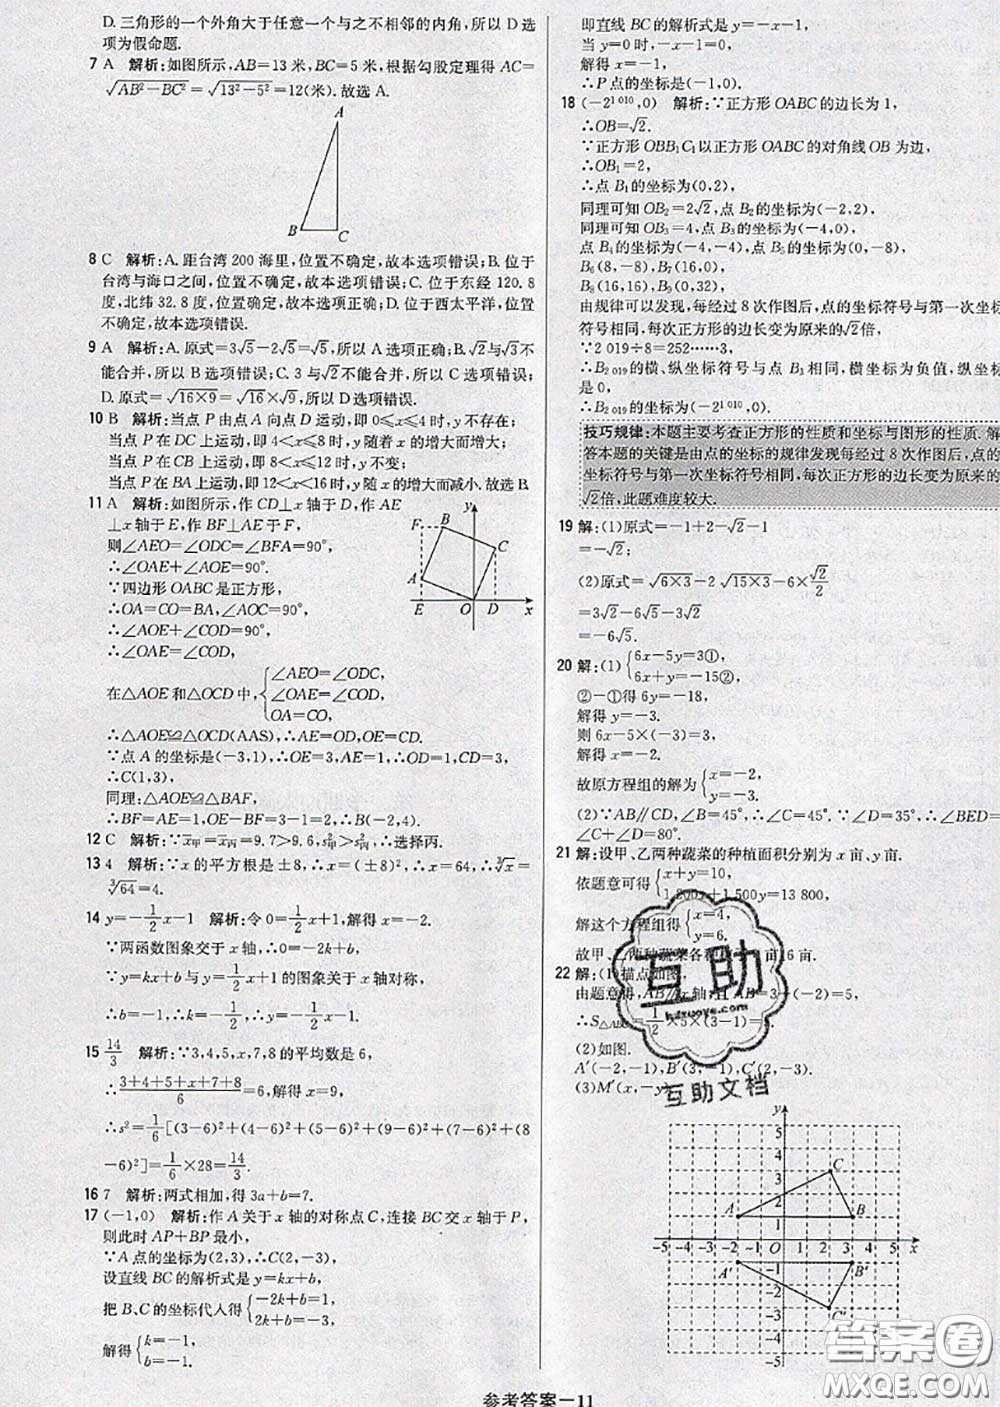 D. 三角形的一个外角大于任意一个与之不相邻的内角,所以 D 选
项为假命题.
7 A 解析:如图所示,AB=13 米,BC=5 米,根据勾股定理得 AC=
√(AB²-BC²)=√(13²-5²)=12(米).故选 A.
A
B C
8 C 解析:A. 距台湾 200 海里,位置不确定,故本选项错误;B. 位于
台湾与海口之间,位置不确定,故本选项错误;C. 位于东经 120.8
度,北纬 32.8 度,位置确定,故本选项正确;D. 位于西太平洋,位置
不确定,故本选项错误.
9 A 解析:A. 原式=3√5-2√5=√5,所以 A 选项正确;B. √2与√3不
能合并,所以 B 选项错误;C. 3 与√2不能合并,所以 C 选项错误;
D. 原式=√(16×9)=√16×√9,所以 D 选项错误.
10 B 解析:当点 P 由点 A 向点 D 运动,即 0≤x≤4 时,y 不存在;
当点 P 在 DC 上运动,即 4<x≤8 时,y 随着 x 的增大而增大;
当点 P 在 CB 上运动,即 8<x≤12 时,y 不变;
当点 P 在 BA 上运动,即 12<x<16 时,y 随 x 的增大而减小.故选 B.
11 A 解析:如图所示,作 CD⊥x 轴于 D,作 AE
⊥x 轴于 E,作 BF⊥AE 于 F,
则∠AEO=∠ODC=∠BFA=90°,
∴∠OAE+∠AOE=90°.
∵四边形 OABC 是正方形,
∴OA=CO=BA,∠AOC=90°,
∴∠AOE+∠COD=90°,
∴∠OAE=∠COD,
在△AOE 和△OCD 中, { ∠AEO=∠ODC,
∠OAE=∠COD,
OA=CO,
∴△AOE≌△OCD(AAS),∴AE=OD,OE=CD.
∵点 A 的坐标是(-3,1),∴OE=3,AE=1,∴OD=1,CD=3,
∴C(1,3),
同理:△AOE≌△BAF,
∴BF=AE=1,OE-BF=3-1=2,∴B(-2,4).
y
F B
C
A
E O D x
12 C 解析:∵x̄甲=x̄丙=9.7>9.6,s²甲>s²丙,∴选择丙.
13 4 解析:∵x 的平方根是±8,∴x=(±8)²,∴x=64,∴³√x=
³√64=4.
14 y=-1/2x-1 解析:令 0=1/2x+1,解得 x=-2.
∵两函数图象交于 x 轴,∴0=1/2x+1,
∵y=kx+b 与 y=1/2x+1 的图象关于 x 轴对称,
∴b=-1,k=-1/2,∴y=-1/2x-1.
15 14/3 解析:∵3,4,5,x,7,8 的平均数是 6,
∴(3+4+5+x+7+8)/6=6,解得 x=9,
∴s²=1/6[(3-6)²+(4-6)²+(5-6)²+(9-6)²+(7-6)²+(8
-6)²]=1/6×28=14/3.
16 7 解析:两式相加,得 3a+b=7.
17 (-1,0) 解析:作 A 关于 x 轴的对称点 C,连接 BC 交 x 轴于 P,
则此时 AP+BP 最小,
∵A 点的坐标为(2,3),∴C(2,-3),
设直线 BC 的解析式是 y=kx+b,
把 B、C 的坐标代入得 { -2k+b=1,
2k+b=-3,
解得 { k=-1,
b=-1.
即直线 BC 的解析式是 y=-x-1,
当 y=0 时,-x-1=0,
解得 x=-1,
∴P 点的坐标是(-1,0).
18 (-2¹⁰¹⁰,0) 解析:∵正方形 OABC 的边长为 1,
∴OB=√2.
∵正方形 OBB₁C₁ 以正方形 OABC 的对角线 OB 为边,
∴OB₁=2,
∴点 B₁ 的坐标为(0,2),
同理可知 OB₂=2√2,点 B₂ 的坐标为(-2,2),
同理可知 OB₃=4,点 B₃ 的坐标为(-4,0),
点 B₄ 的坐标为(-4,-4),点 B₅ 的坐标为(0,-8),
B₆(8,-8),B₇(16,0)
B₈(16,16),B₉(0,32),
由规律可以发现,每经过 8 次作图后,点的坐标符号与第一次坐标
符号相同,每次正方形的边长变为原来的√2倍,
∵2 019÷8=252……3,
∴B₂ ₀₁₉ 的横、纵坐标符号与点 B₃ 相同,横坐标为负值,纵坐标
是 0,
∴B₂ ₀₁₉ 的坐标为(-2¹⁰¹⁰,0).
技巧规律:本题主要考查正方形的性质和坐标与图形的性质.解
答本题的关键是由点的坐标的规律发现每经过 8 次作图后,点的
坐标符号与第一次坐标符号相同,每次正方形的边长变为原来的
√2倍,此题难度较大.
19 解:(1)原式=-1+2-√2-1
=-√2;
(2)原式=√(6×3)-2√(15×3)-6×√2/2
=3√2-6√5-3√2
=-6√5.
20 解:(1) { 6x-5y=3①,
6x+y=-15②,
②-①得 6y=-18,
解得 y=-3.
则 6x-5×(-3)=3,
解得 x=-2.
故原方程组的解为 { x=-2,
y=-3.
(2)∵AB∥CD,∠B=45°,∴∠C=∠B=45°.∵∠D=35°,∴∠BED=
∠C+∠D=80°.
21 解:设甲、乙两种蔬菜的种植面积分别为 x 亩、y 亩.
依题意可得 { x+y=10,
1 800x+1 500y=13 800,
解这个方程组得 { x=4,
y=6.
故甲、乙两种蔬菜各种植 4 亩、6 亩.
22 解:(1)描点如图,
由题意得,AB∥x 轴,且 AB=3-(-2)=5,
∴S△ABC=1/2×5×(3-1)=5.
(2)如图.
A′(-2,-1),B′(3,-1),C′(2,-3).
(3)M′(x,-y).
y
5
4
3
2
1
-5 -4 -3 -2 -1 O 1 2 3 4 5 x
-1
-2
-3
-4
-5
A B C
A′ B′ C′
互助
hdzuoye.com
互助文档
答案圈
MXQE.COM
参考答案—11